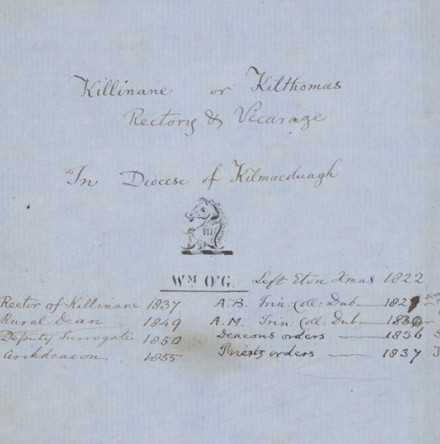 Killinane or Kilthomas
Rectory & Vicarage
In Diocese of Kilmacduagh
Wᴹ O'G. Left Eton Xmas 1822
Rector of Killinane 1837 A.B. Trin: Coll: Dub
Rural Dean 1849 A.M. Trin. Coll: Dub
Deputy Surrogate 1850 Deacons orders — 1836
Archdeacon 1855 Priests orders — 1837